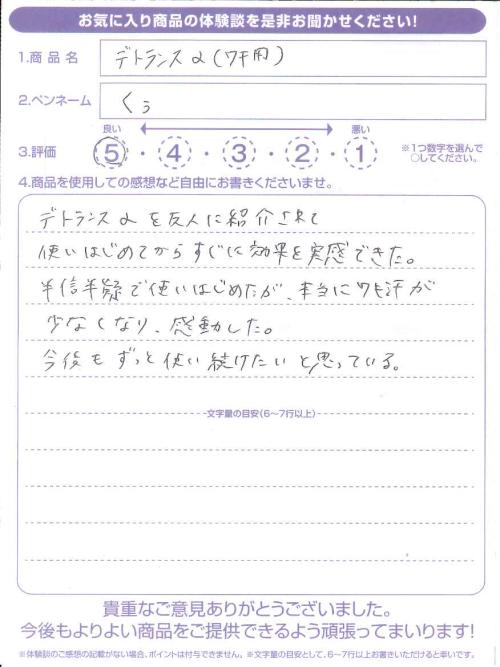 お気に入り商品の体験談を是非お聞かせください!
1.商品名
デトランスα(ワキ用)
2.ペンネーム
くぅ
良い
悪い
3.評価
5・4・3・2・1
※1つ数字を選んで
○してください。
4.商品を使用しての感想など自由にお書きくださいませ。
デトランスαを友人に紹介されて
使いはじめてからすぐに効果を実感できた。
半信半疑で使いはじめたが、本当にワキ汗が
少なくなり、感動した。
今後もずっと使い続けたいと思っている。
文字量の目安(6〜7行以上)
貴重なご意見ありがとうございました。
今後もよりよい商品をご提供できるよう頑張ってまいります!
※体験談のご感想の記載がない場合、ポイントは付与できません。※文字量の目安として、6〜7行以上お書きいただけると幸いです。